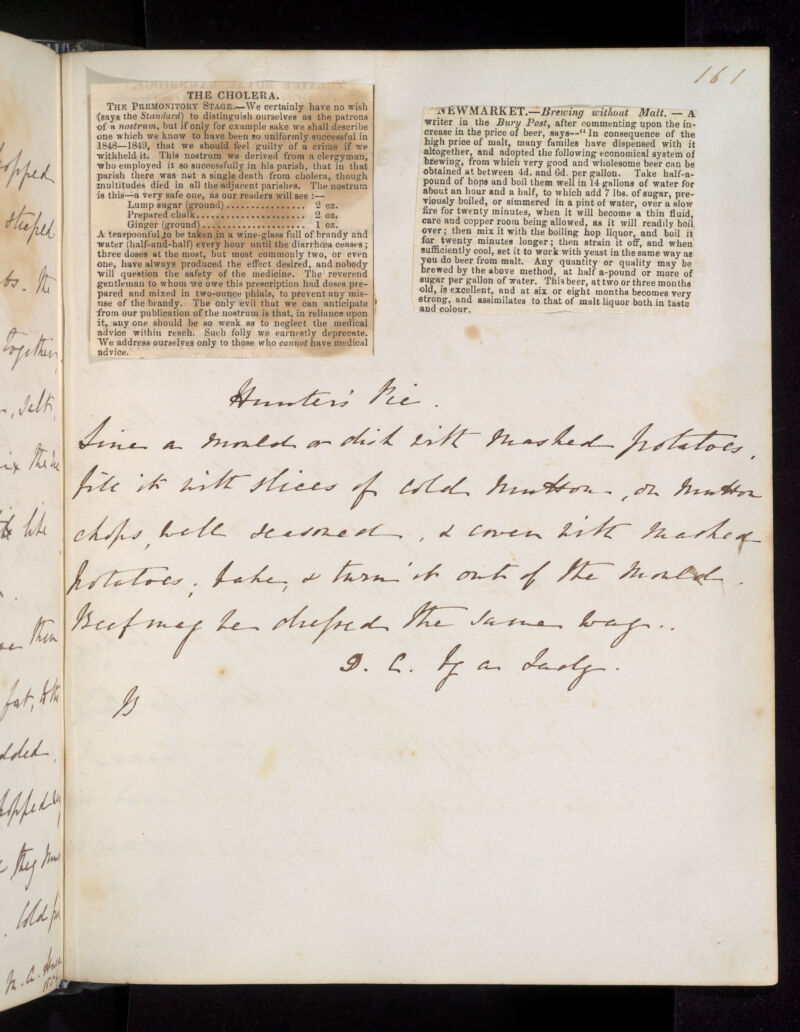 161
THE CHOLERA.
THE PREMONITORY STAGE.—We certainly have no wish
(says the Standard) to distinguish ourselves as the patrons
of a nostrum, but if only for example sake we shall describe
one which we know to have been so uniformly successful in
1848—1849, that we should feel guilty of a crime if we
withheld it. This nostrum we derived from a clergyman,
who employed it so successfully in his parish, that in that
parish there was not a single death from cholera, though
multitudes died in all the adjacent parishes. The nostrum
is this—a very safe one, as our readers will see :—
Lump sugar (ground) ............... 2 oz.
Prepared chalk..................... 2 oz.
Ginger (ground).................... 1 oz.
A teaspoonful to be taken in a wine-glass full of brandy and
water (half-and-half) every hour until the diarrhœa ceases;
three doses at the most, but most commonly two, or even
one, have always produced the effect desired, and nobody
will question the safety of the medicine. The reverend
gentleman to whom we owe this prescription had doses pre-
pared and mixed in two-ounce phials, to prevent any mis-
use of the brandy. The only evil that we can anticipate
from our publication of the nostrum is that, in reliance upon
it, any one should be so weak as to neglect the medical
advice within reach. Such folly we earnestly deprecate.
We address ourselves only to those who cannot have medical
advice.
NEWMARKET.—Brewing without Malt. — A
writer in the Bury Post, after commenting upon the in-
crease in the price of beer, says--"In consequence of the
high price of malt, many familes have dispensed with it
altogether, and adopted the following economical system of
brewing, from which very good and wholesome beer can be
obtained at between 4d. and 6d. per gallon. Take half-a-
pound of hops and boil them well in 14 gallons of water for
about an hour and a half, to which add 7 lbs. of sugar, pre-
viously boiled, or simmered in a pint of water, over a slow
fire for twenty minutes, when it will become a thin fluid,
care and copper room being allowed, as it will readily boil
over; then mix it with the boiling hop liquor, and boil it
for twenty minutes longer; then strain it off, and when
sufficiently cool, set it to work with yeast in the same way as
you do beer from malt. Any quantity or quality may be
brewed by the above method, at half a-pound or more of
sugar per gallon of water. This beer, at two or three months
old, is excellent, and at six or eight months becomes very
strong, and assimilates to that of malt liquor both in taste
and colour.
Hunter's Pie.
Line a mould or dish with mashed potatoes,
fill it with slices of cold mutton, or mutton
chops, well seasoned, & cover with mashed
potatoes; bake, & turn it out of the mould.
Beef may be dressed the same way..
lopped
steeped
lbs. the
together,
salt,
like
fat, to the
added,
chopped
they
Cold